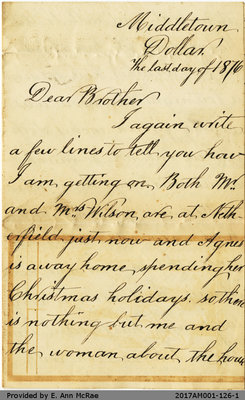 Middletown
Dollar
The last day of 1876
Dear Brother
I again write
a few lines to tell you how
I am, getting on, Both Mr.
and Mrs Wilson, are, at, Neth
erfield just now and Agnes
is away home, spending her
Christmas holidays. so there
is nothing but me and
the woman about the house
Provided by E. Ann McRae
2017AM001-126-1